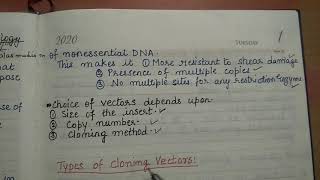 ology
2020
TUESDAY
1
of nonessential DNA.
This makes it ① More resistant to shear damage
② Presence of multiple copies
③ No multiple sites for any restriction enzyme
that
pose
• Choice of vectors depends upon
① Size of the insert.
② Copy number.
③ Cloning method.
se of
Types of Cloning Vectors: